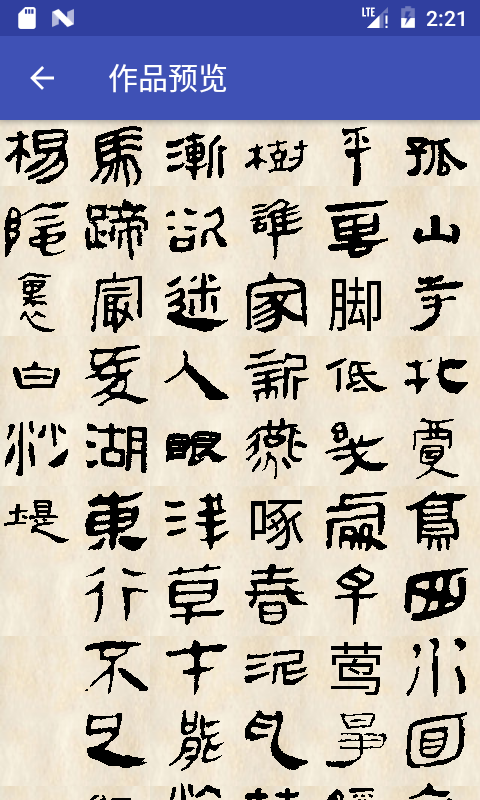 LTE 2:21
作品预览
孤山寺北賈亭西水面
平雲脚低幾處早莺爭
樹誰家新燕啄春泥亂
漸欲迷人眼淺草才能
馬蹄最愛湖東行不足
楊陰裏白沙堤